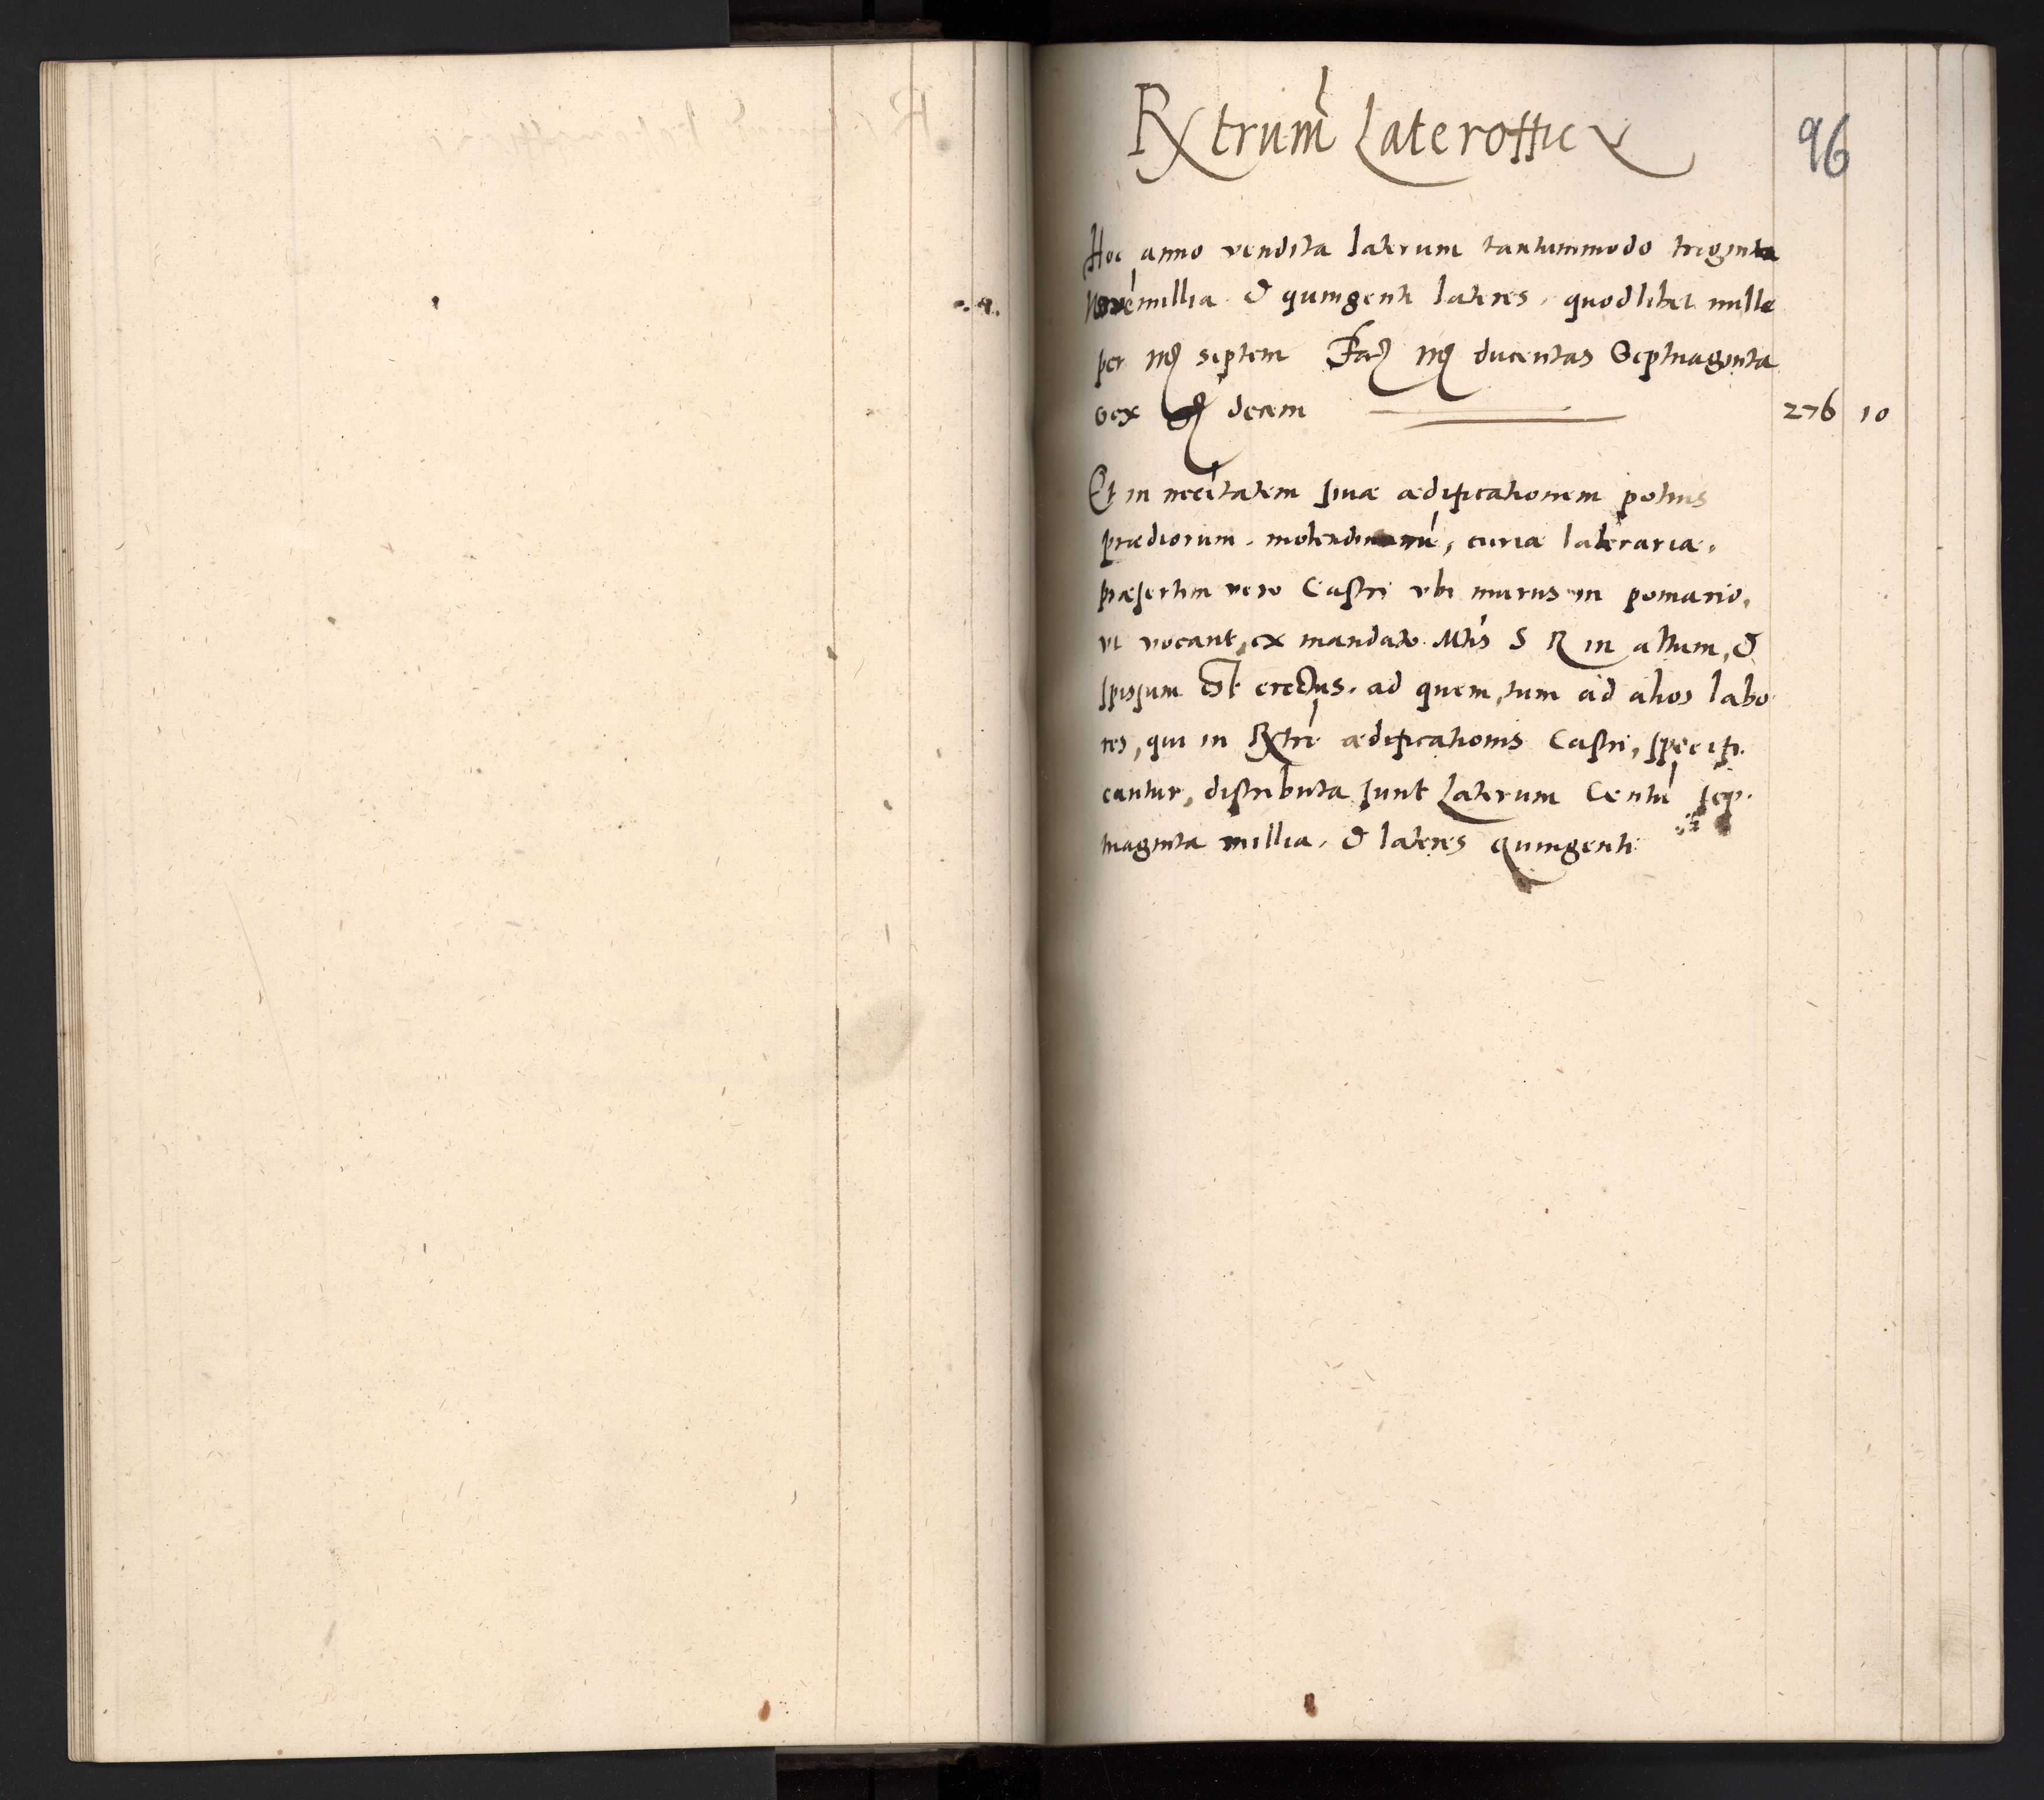 Rxtrum̃ Lateroffic
96
Hoc anno vendita laterum tantummodo triginta
Novẽmillia & quingenti lateres, quodlibet mille
per mg septem Fac mg ducentas Septuaginta
sex decem
276 10
Et in necītatem suæ ædificationem potius
prædiorum. molendinarũ, curiæ laterariæ,
præsertim vero Castri vbi murus in pomario,
vt vocant, ex mandato Mtis S R in altum, &
spissum est erectus. ad quem, tum ad alios labo
res, qui in Rxtrẽ ædificationis Castri, specifi
cantur, distributa sunt Laterum Centũ sep
tuaginta millia, & lateres quingenti